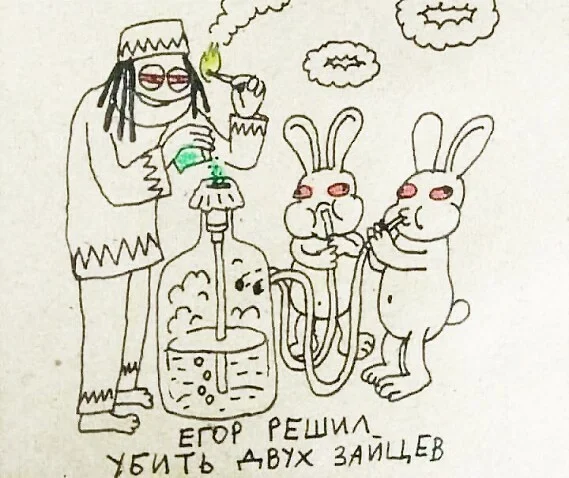 ЕГОР РЕШИЛ
УБИТЬ ДВУХ ЗАЙЦЕВ